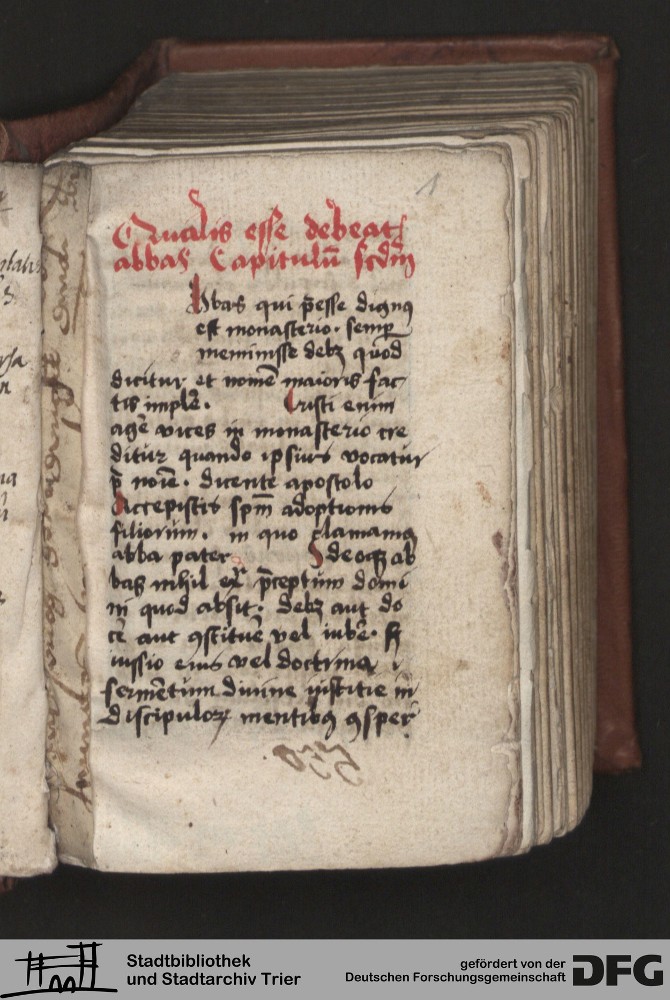 1
Qualis esse debeat
abbas Capitulū scdm̄
Abas qui p̄esse dignꝰ
est monasterio. semꝑ
meminisse debꝫ quod
dicitur et nomē maioris fac
tis implē. Cristi enim
agē vices in monasterio cre
ditur quando ipsius vocatur
p̄ noīe. dicente apostolo
Accepistis spm̄ adoptionis
filiorum. in quo clamamꝰ
abba pater Ideoqꝫ ab
bas nihil ex̄ p̄ceptum domi
ni quod absit. debꝫ aut do
cē aut ꝯstituē vel iubē. sꝫ
iussio eius vel doctrina
fermentum diuine iusticie in
discipuloꝝ mentibꝰ ꝯsper
Stadtbibliothek
und Stadtarchiv Trier
gefördert von der
Deutschen Forschungsgemeinschaft
DFG